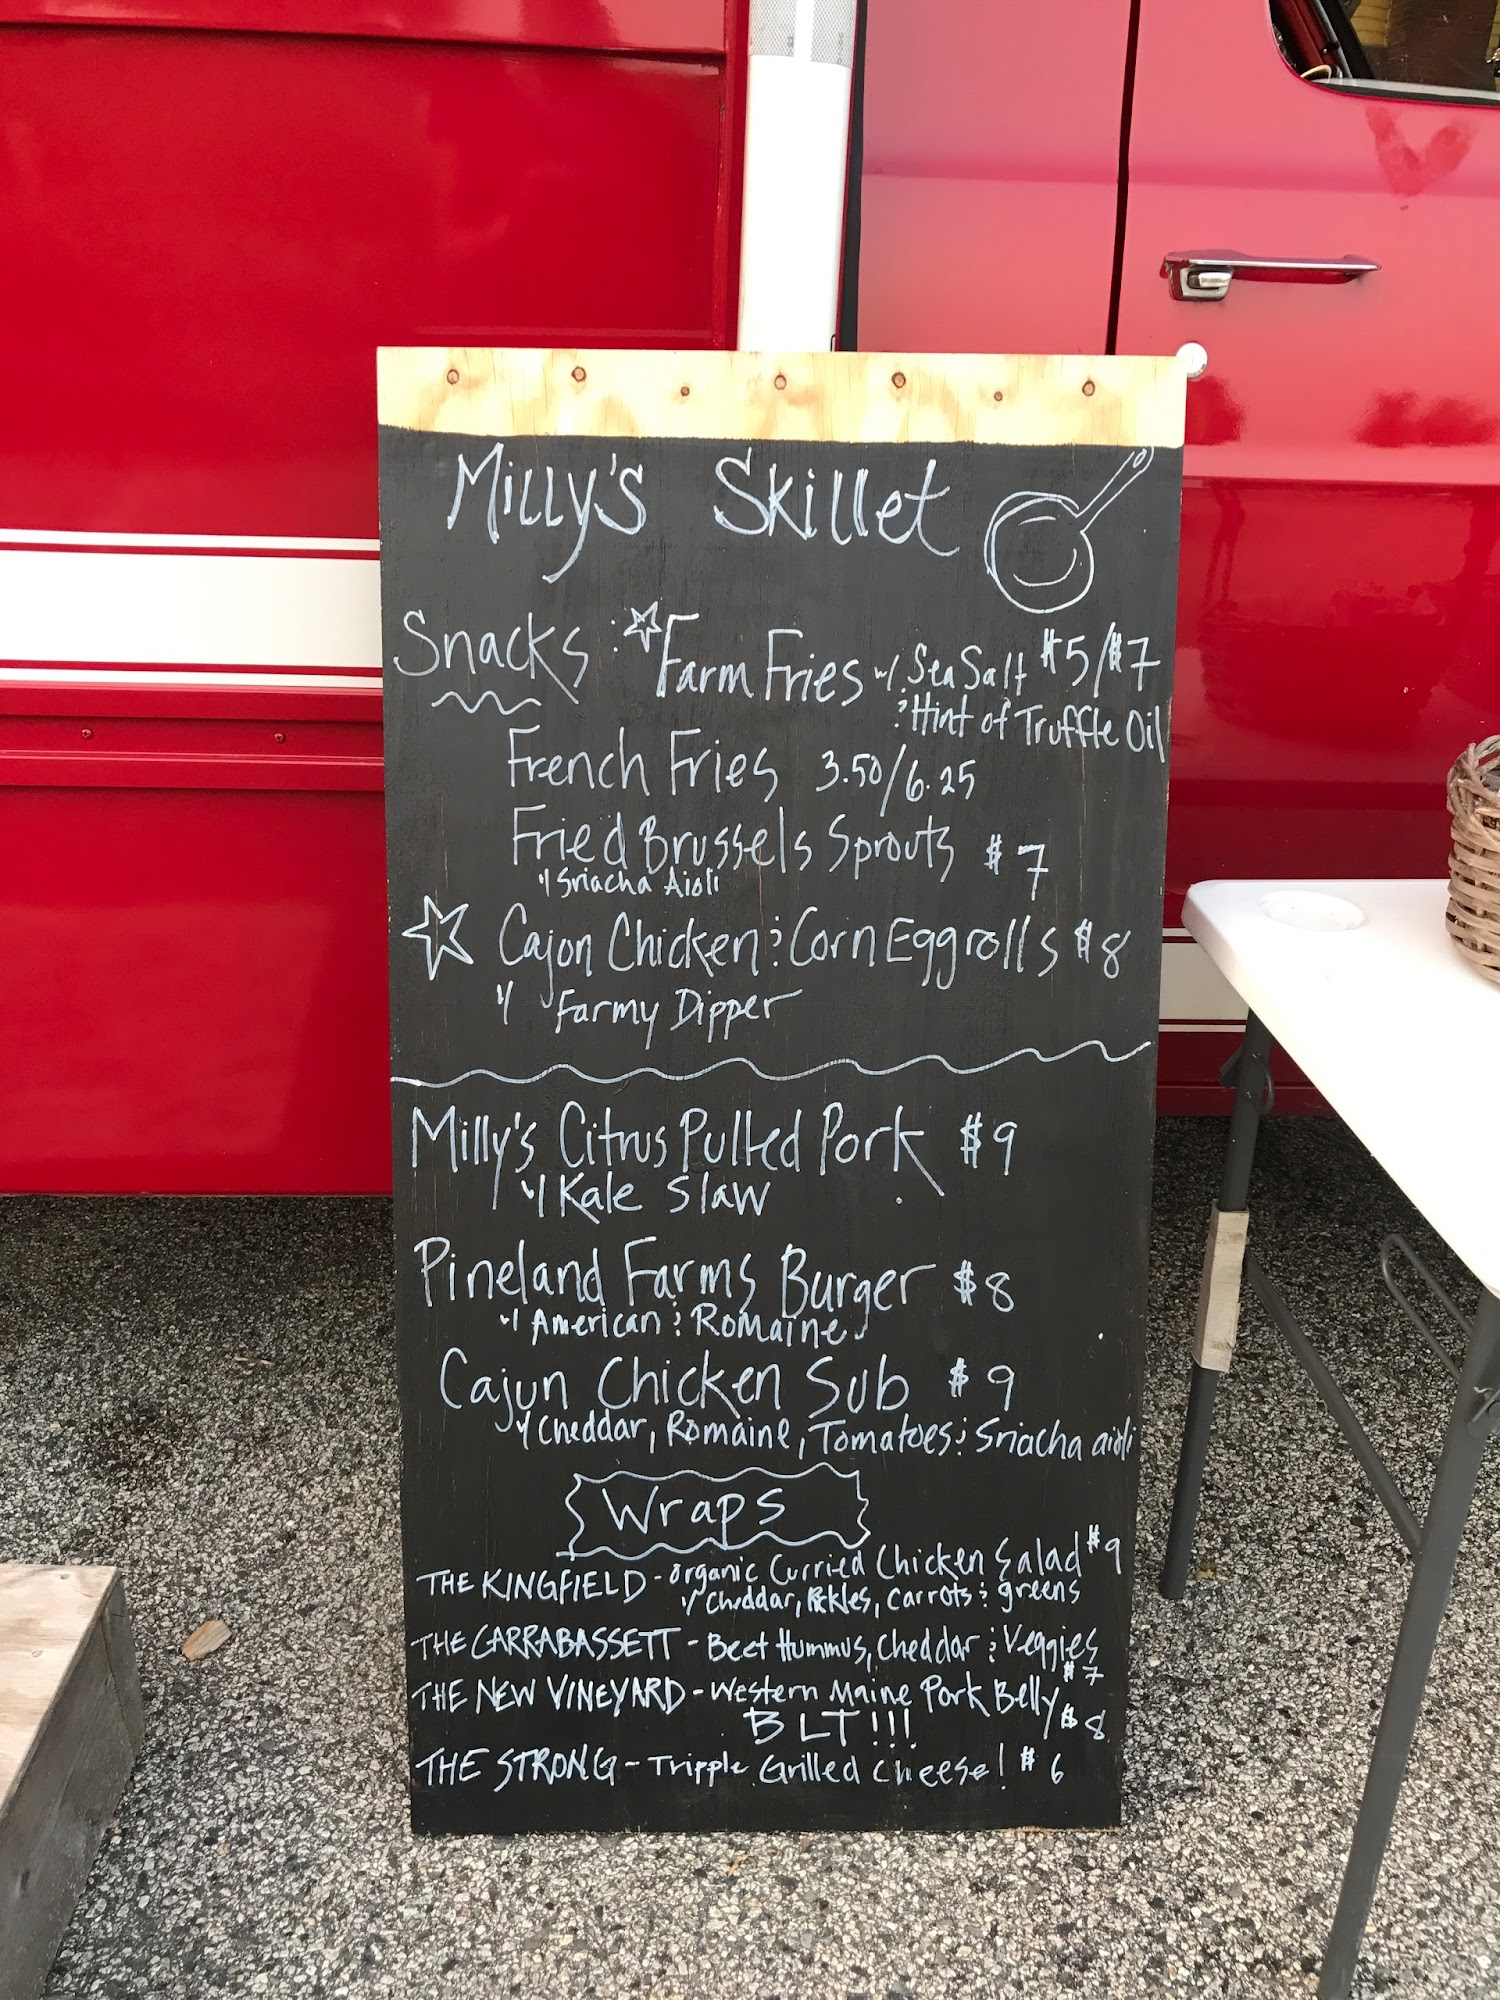 Milly's Skillet
Snacks: Farm Fries w/ Sea Salt $5/$7
& Hint of Truffle Oil
French Fries 3.50/6.25
Fried Brussels Sprouts $7
w/ Sriacha Aioli
Cajon Chicken & Corn Eggrolls $8
w/ Farmy Dipper
Milly's Citrus Pulled Pork $9
w/ Kale Slaw
Pineland Farms Burger $8
w/ American & Romaine
Cajun Chicken Sub $9
w/ Cheddar, Romaine, Tomatoes & Sriacha aioli
Wraps
THE KINGFIELD - organic Curried Chicken Salad $9
w/ Cheddar, Pickles, Carrots & greens
THE CARRABASSETT - Beet Hummus, Cheddar & Veggies
$7
THE NEW VINEYARD - Western Maine Pork Belly
BLT!!! $8
THE STRONG - Tripple Grilled Cheese! $6